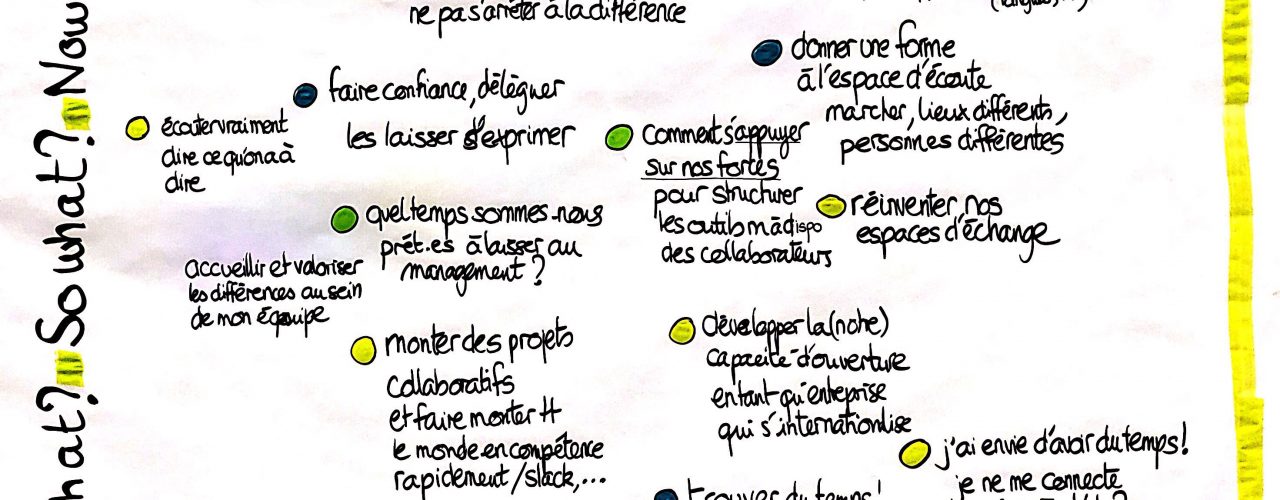 What? So what? Now
ne pas s'arrêter à la différence
donner une forme
à l'espace d'écoute
marcher, lieux différents,
personnes différentes
faire confiance, délèguer
les laisser s'exprimer
écouter vraiment
dire ce qu'on a à
dire
comment s'appuyer
sur nos fortes
pour structurer
les outils m à dispo
des collaborateurs
réinventer nos
espaces d'échange
quel temps sommes-nous
prêt.es à laisser au
management ?
accueillir et valoriser
les différences au sein
de mon équipe
monter des projets
collaboratifs
et faire monter tt
le monde en compétence
rapidement / slack, ...
développer la (notre)
capacité d'ouverture
en tant qu'enteprise
qui s'internationlise
j'ai envie d'avoir du temps!
je ne me connecte
trouver du temps!